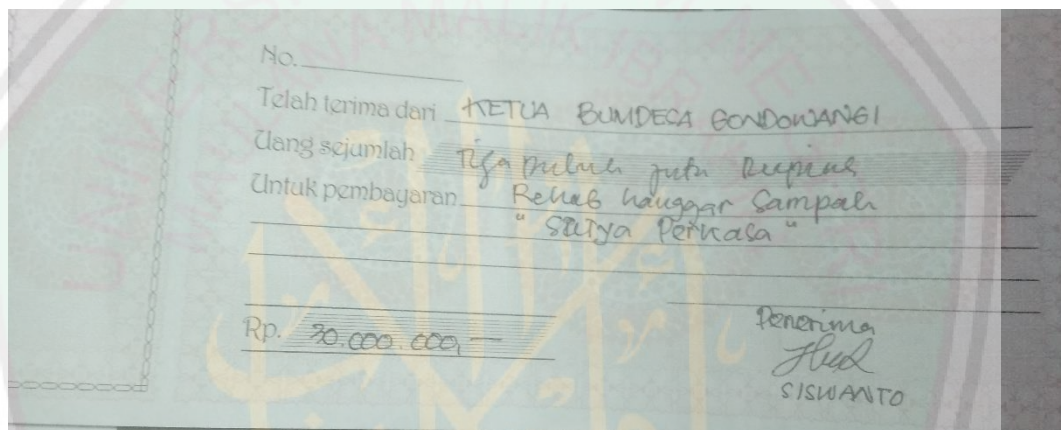 No.
Telah terima dari KETUA BUMDESA GONDOWANGI
Uang sejumlah Tiga puluh juta Rupiah
Untuk pembayaran Rehab hanggar Sampah
" Satya Perkasa "
Rp. 30.000.000,—
Penerima
SISWANTO